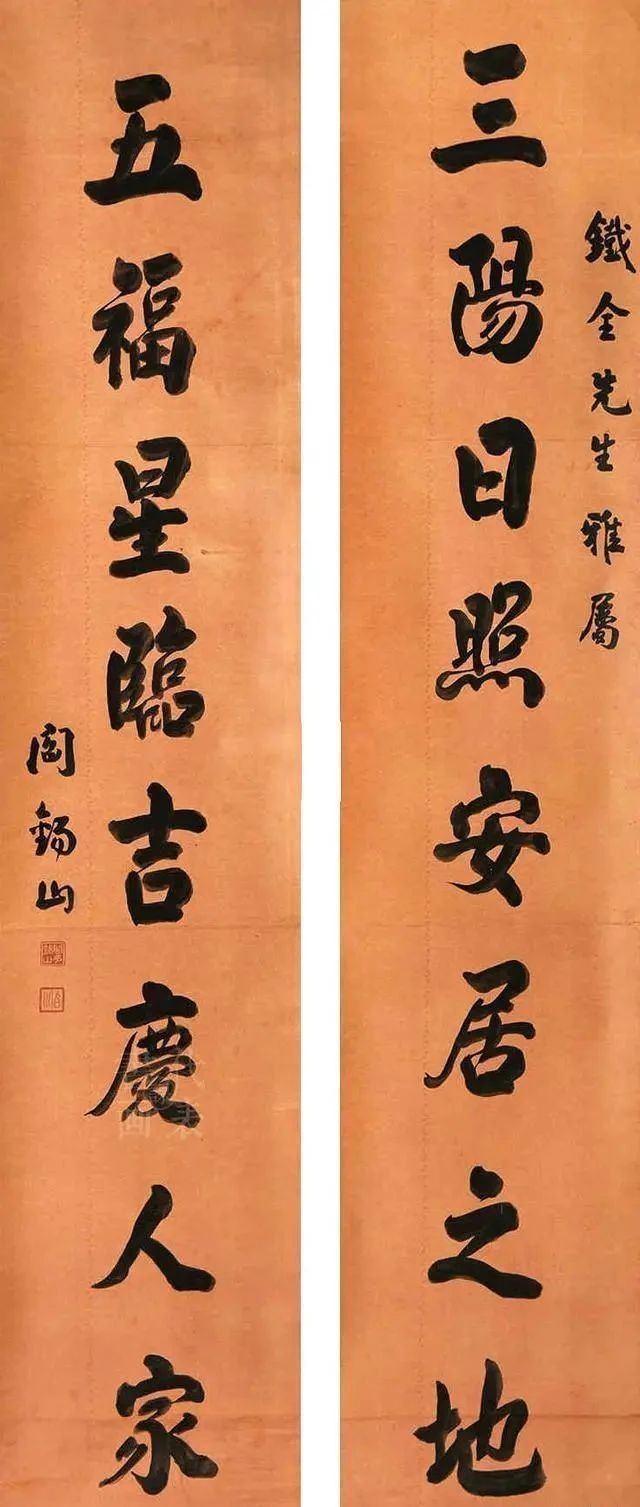 鐵全先生雅屬
三陽日照安居之地
五福星臨吉慶人家
閻錫山